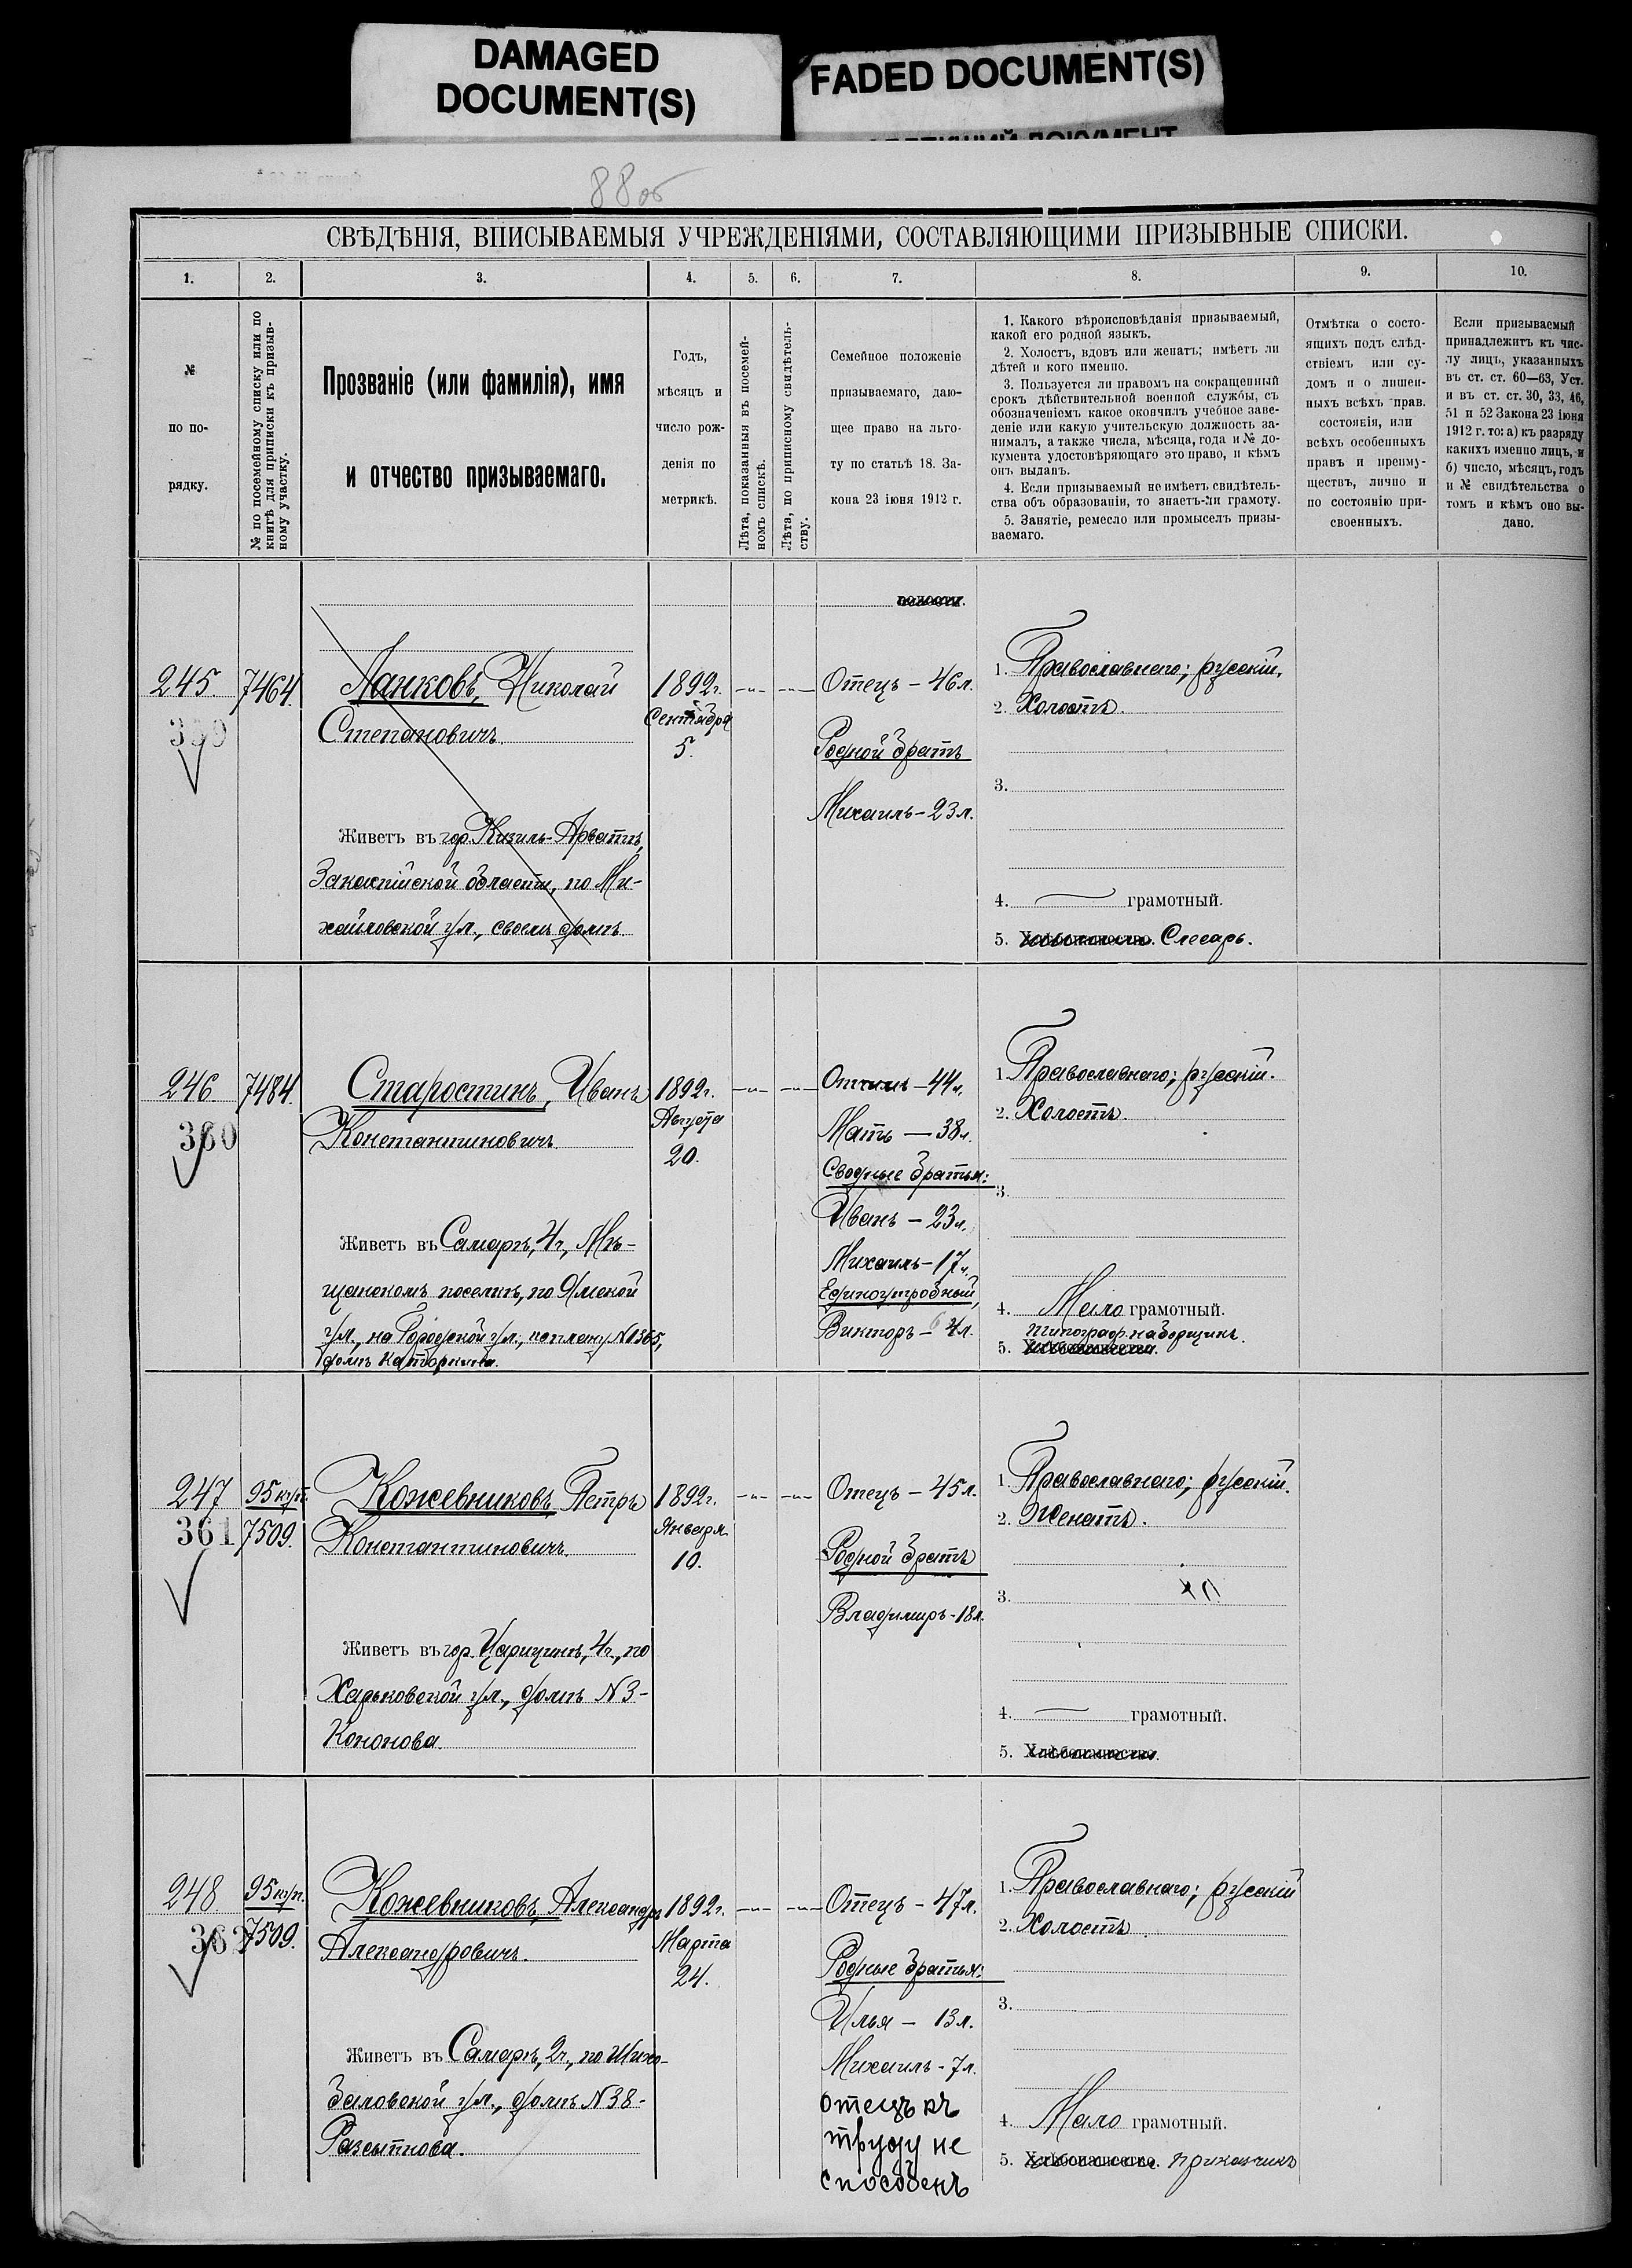 DAMAGED
DOCUMENT(S)
FADED DOCUMENT(S)
88об
СВѢДѢНІЯ, ВПИСЫВАЕМЫЯ УЧРЕЖДЕНІЯМИ, СОСТАВЛЯЮЩИМИ ПРИЗЫВНЫЕ СПИСКИ.
1. 2. 3. 4. 5. 6. 7. 8. 9. 10.
№
по по-
рядку.
№ по посемейному списку или по
книгѣ для приписки къ призыв-
ному участку.
Прозваніе (или фамилія), имя
и отчество призываемаго.
Годъ,
мѣсяцъ и
число рож-
денія по
метрикѣ.
Лѣта, показанныя въ посемей-
номъ спискѣ.
Лѣта, по приписному свидѣтель-
ству.
Семейное положеніе
призываемаго, даю-
щее право на льго-
ту по статьѣ 18. За-
кона 23 іюня 1912 г.
1. Какого вѣроисповѣданія призываемый,
какой его родной языкъ.
2. Холостъ, вдовъ или женатъ; имѣетъ ли
дѣтей и кого именно.
3. Пользуется ли правомъ на сокращенный
срокъ дѣйствительной военной службы, съ
обозначеніемъ какое окончилъ учебное заве-
деніе или какую учительскую должность за-
нималъ, а также числа, мѣсяца, года и № до-
кумента удостовѣряющаго это право, и кѣмъ
онъ выданъ.
4. Если призываемый не имѣетъ свидѣтель-
ства объ образованіи, то знаетъ-ли грамоту.
5. Занятіе, ремесло или промыселъ призы-
ваемаго.
Отмѣтка о состо-
ящихъ подъ слѣд-
ствіемъ или су-
домъ и о лишен-
ныхъ всѣхъ прав.
состоянія, или
всѣхъ особенныхъ
правъ и преиму-
ществъ, лично и
по состоянію при-
своенныхъ.
Если призываемый
принадлежитъ къ чис-
лу лицъ, указанныхъ
въ ст. ст. 60—63, Уст.
и въ ст. ст. 30, 33, 46,
51 и 52 Закона 23 іюня
1912 г. то: а) къ разряду
какихъ именно лицъ, и
б) число, мѣсяцъ, годъ
и № свидѣтельства о
томъ и кѣмъ оно вы-
дано.
245. 7464.
Ланковъ, Николай
Степановичъ
Живетъ въ гор. Кизилъ-Арватѣ,
Закаспійской области, по Ми-
хайловской ул., своемъ домѣ.
1892г.
Сентября
5.
Отецъ - 46л.
Родной братъ
Михаилъ - 23л.
1. Православнаго; русскій.
2. Холостъ.
3.
4. грамотный.
5. Хлѣбопашество. Слесарь.
246. 7484.
360
Старостинъ, Иванъ
Константиновичъ
Живетъ въ Самарѣ, 4ч., Мѣ-
щанскомъ поселкѣ, по Ямской
ул., на Городской ул., по плану № 1365,
1892г.
Августа
20.
Отчимъ - 44л.
Мать - 38л.
Сводные братья:
Иванъ - 23л.
Михаилъ - 17л.
Единоутробный,
Викторъ - 4л.
1. Православнаго; русскій.
2. Холостъ.
3.
4. Мало грамотный.
типограф. наборщикъ.
5. Хлѣбопашество.
247 95 куп.
361 7509.
Кожевниковъ Петръ
Константиновичъ.
Живетъ въ гор. Царицынѣ, 4ч., по
Харьковской ул., домъ № 3-
Кононова.
1892г.
Января.
10.
Отецъ - 45л.
Родной братъ
Владимиръ - 18л.
1. Православнаго; русскій.
2. Женатъ.
3.
4. грамотный.
5. Хлѣбопашество.
248 95 куп.
362 7509.
Кожевниковъ, Александръ
Александровичъ.
Живетъ въ Самарѣ, 2ч., по Шихо-
баловской ул., домъ № 38-
1892г.
Марта
24.
Отецъ - 47л.
Родные братья:
Илья - 13л.
Михаилъ - 7л.
отецъ къ
труду не
способенъ
1. Православнаго; русскій
2. Холостъ
3.
4. Мало грамотный.
5. Хлѣбопашество. приказчикъ